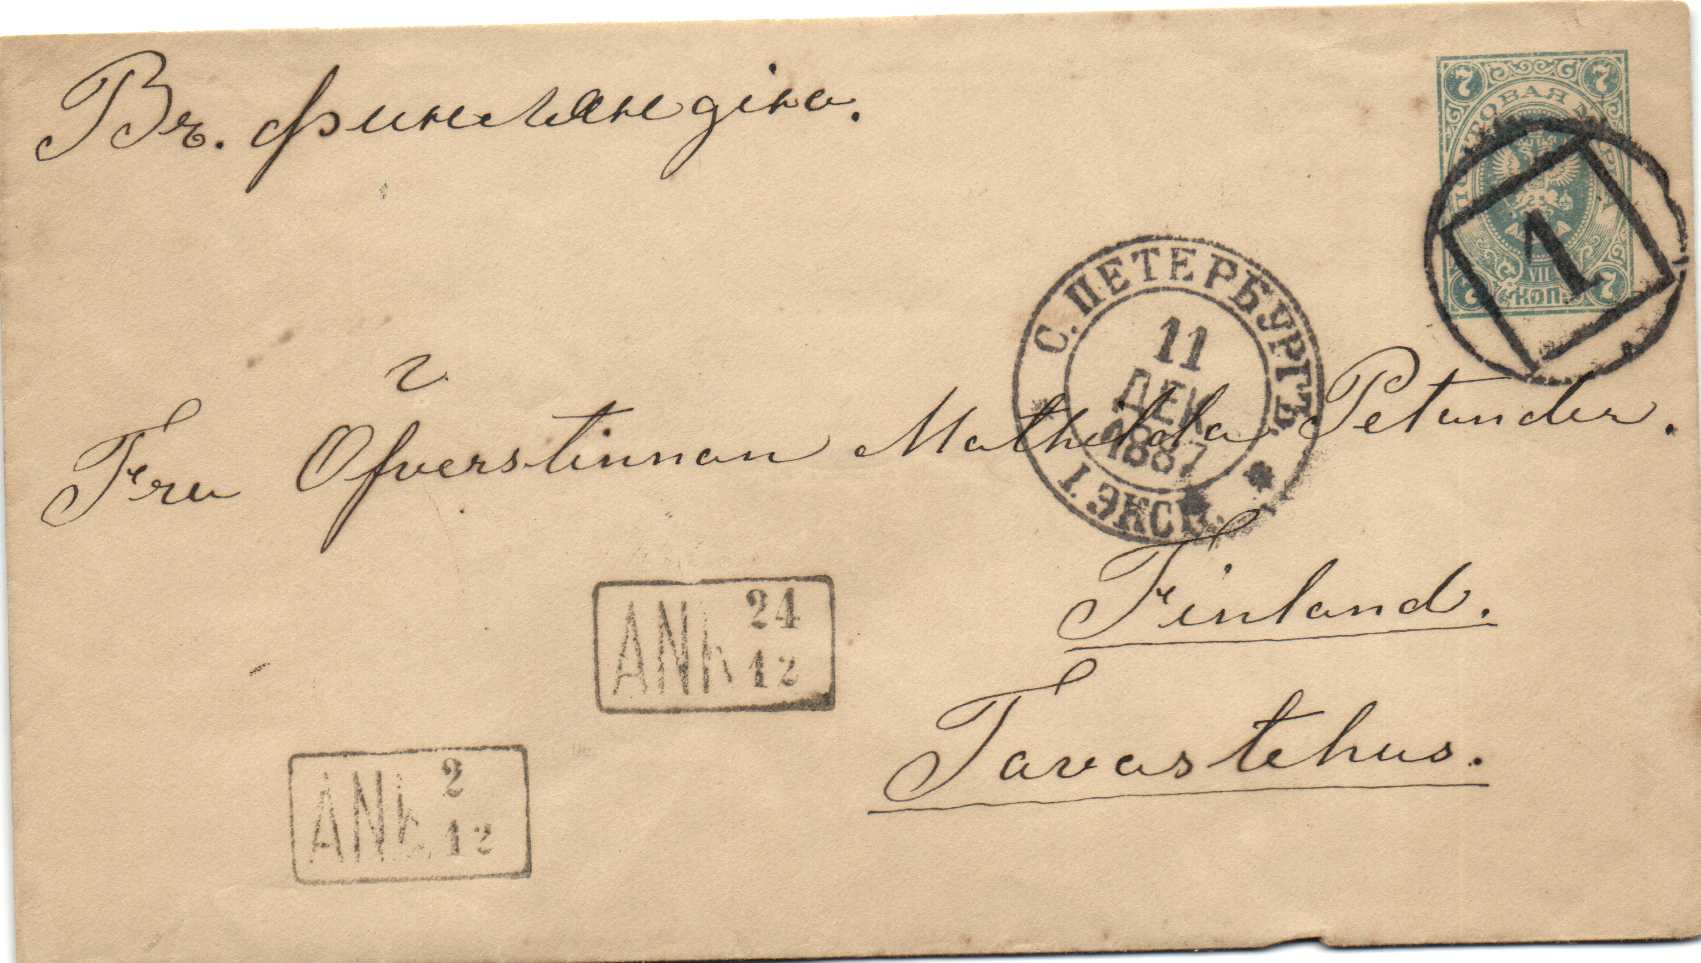 Въ. Финляндію.
7 7
ПОЧТОВАЯ
VII
КОП.
7 7
1
С. ПЕТЕРБУРГЪ.
11
ДЕК
1887
I. ЭКСП.
Fru Öfverstinnan Mathilda Petander.
Finland.
Tavastehus.
ANK 24
12
ANK 2
12